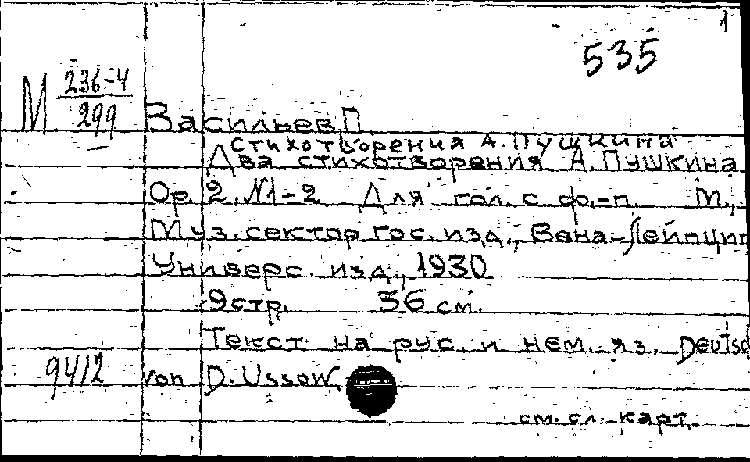 1
535
М 236-4
299
Васильев, П.
Стихотворения А. Пушкина
Два стихотворения А. Пушкина
Op. 2. №1-2 Для гол. с ф.-п. М.,
Муз. сектор Гос. изд., Вена-Лейпциг
Универс. изд., 1930
9 стр. 36 см.
Текст на рус. и нем. яз. Deutsc
9412 von D. Ussow.
см. сл. карт.